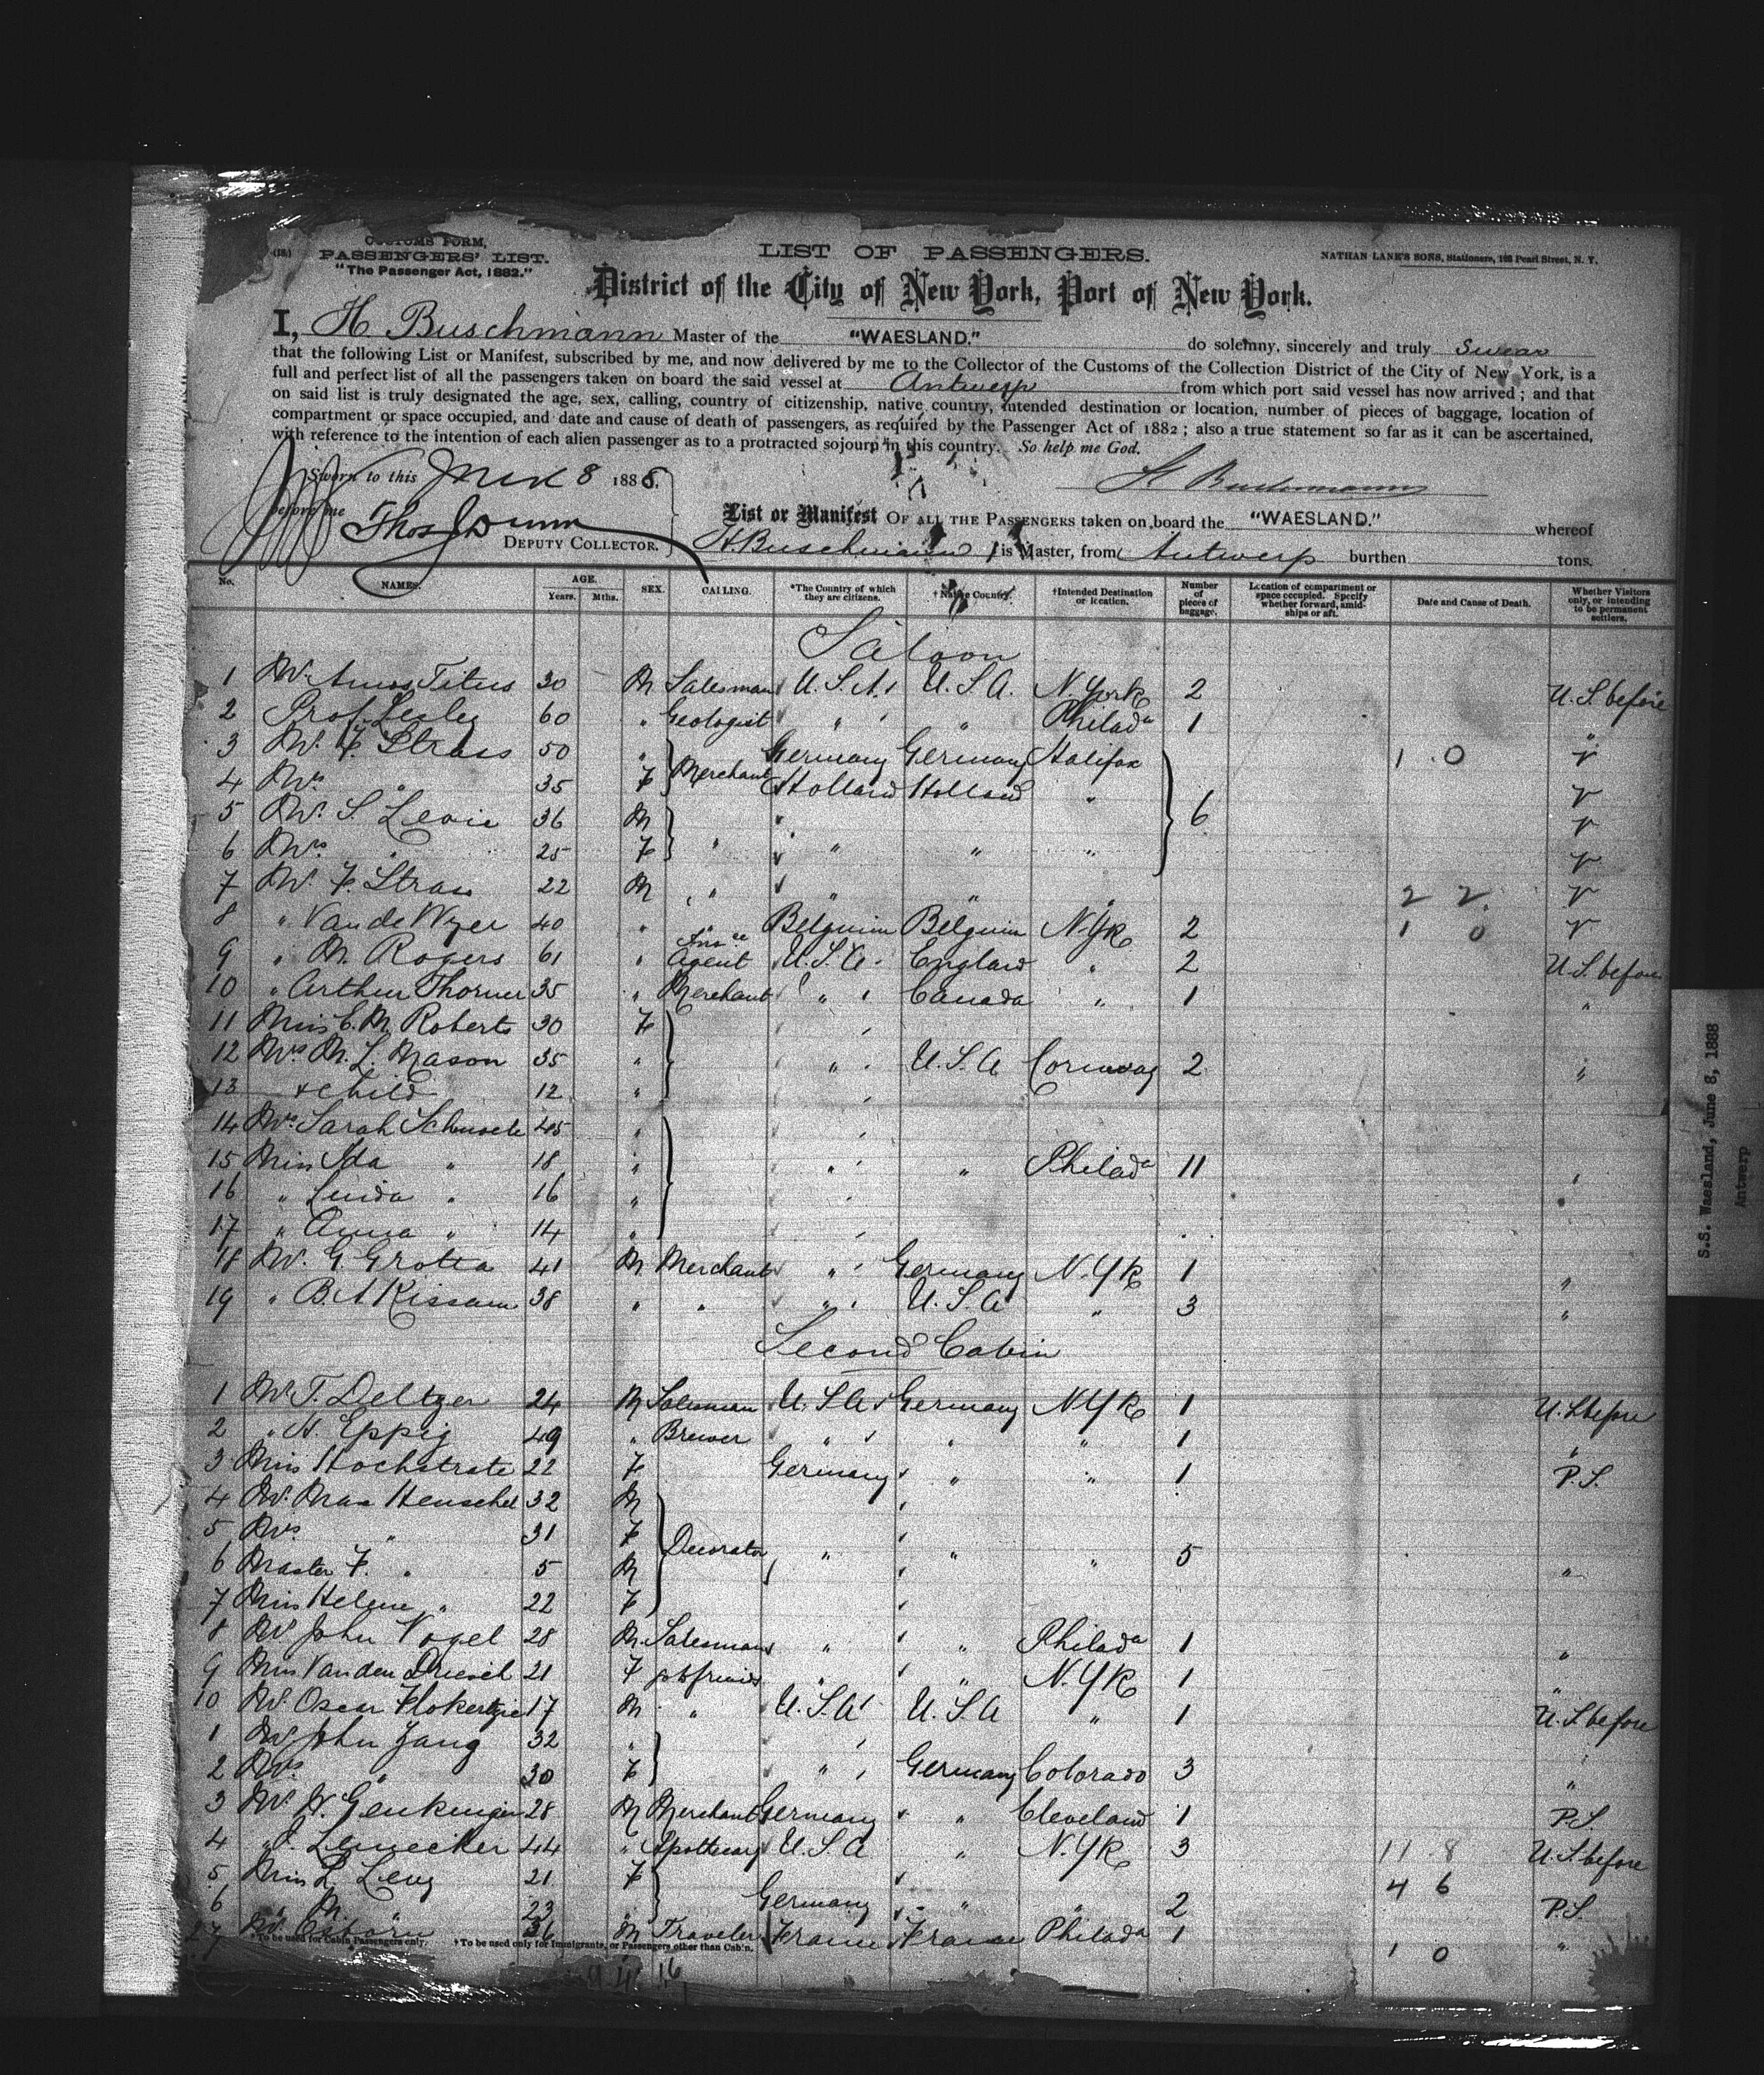 (18.)
CUSTOMS FORM,
PASSENGERS' LIST.
"The Passenger Act, 1882."
LIST OF PASSENGERS.
NATHAN LANE'S SONS, Stationers, Pearl Street, N. Y.
District of the City of New York, Port of New York.
I, H Buschmann Master of the "WAESLAND." do solemny, sincerely and truly swear
that the following List or Manifest, subscribed by me, and now delivered by me to the Collector of the Customs of the Collection District of the City of New York, is a
full and perfect list of all the passengers taken on board the said vessel at Antwerp from which port said vessel has now arrived; and that
on said list is truly designated the age, sex, calling, country of citizenship, native country, intended destination or location, number of pieces of baggage, location of
compartment or space occupied, and date and cause of death of passengers, as required by the Passenger Act of 1882; also a true statement so far as it can be ascertained,
with reference to the intention of each alien passenger as to a protracted sojourn in this country. So help me God.
Sworn to this June 8 1888.
H Buschmann
before me
Thos J Dunn
DEPUTY COLLECTOR.
List or Manifest OF ALL THE PASSENGERS taken on board the "WAESLAND." whereof
H Buschmann is Master, from Antwerp burthen tons.
No. NAMES. AGE. Years. Mths. SEX. CALLING. *The Country of which they are citizens. †Native Country. †Intended Destination or location. Number of pieces of baggage. Location of compartment or space occupied. Specify whether forward, amidships or aft. Date and Cause of Death. Whether Visitors only, or intending to be permanent settlers.
Saloon
1 Mr. Amos Titus 30 M Salesman U.S.A. U.S.A. N. York 2 U.S. before
2 Prof. Lesley 60 " Geologist " " Philada 1 "
3 Mr. F. Straus 50 " Merchant Germany Germany Halifax 1 0 V
4 Mrs. " 35 F Holland Holland " 6 V
5 Mr. S. Levie 36 M " V
6 Mrs. " 25 F " " " " V
7 Mr. F. Straus 22 M " " " " 2 2. V
8 " Van de Wyer 40 " " Belguim Belguim N.YK 2 1 0 V
9 " M. Rogers 61 " Insce Agent U.S.A. England " 2 U.S. before
10 " Arthur Thorner 35 " Merchant " Canada " 1 "
11 Miss C. M. Roberts 30 F
12 Mrs M. L. Mason 35 " " U.S.A 2 "
13 + Child 12 "
14 Mrs. Sarah 45 "
15 Miss Ida " 18 " " " Philada 11
16 " " 16 "
17 " Anna " 14 "
18 Mr. G. Grotta 41 M Merchant " Germany N.YK 1 "
19 " B. A Kissam 38 " " " U.S.A " 3 "
Second Cabin
1 Mr. T. Deltzer 24 M Salesman U.S.A Germany N.YK 1 U.S. before
2 " H. Eppig 49 " Brewer " " " 1 "
3 Miss Hochstrate 22 F Germany " " 1 P.S.
4 Mr. Max Henschel 32 M
5 Mrs. " 31 F Decorator " " " 5
6 Master F. " 5 M "
7 Miss Helene " 22 F
8 Mr John Vogel 28 M Salesman " " Philada 1 "
9 Miss Vanden Driesch 21 F to friends " " N.YK 1 "
10 Mr. Oscar 17 M " U.S.A U.S.A " 1 U.S. before
1 Mr John 32 "
2 Mrs. " 30 F " Germany Colorado 3 "
3 Mr W. 28 M Merchant Germany " Cleveland 1 P.S.
4 " 44 " Apothecary U.S.A " N.YK 3 11 8 U.S. before
5 Miss L. Levy 21 F 4 6
6 " M. " 23 " Germany " " 2 P.S.
27 Mr. 36 M Traveler France France Philada 1 1 0 "
*To be used for Cabin Passengers only. †To be used only for Immigrants, or Passengers other than Cabin.
16
S.S. Waesland, June 8, 1888
Antwerp